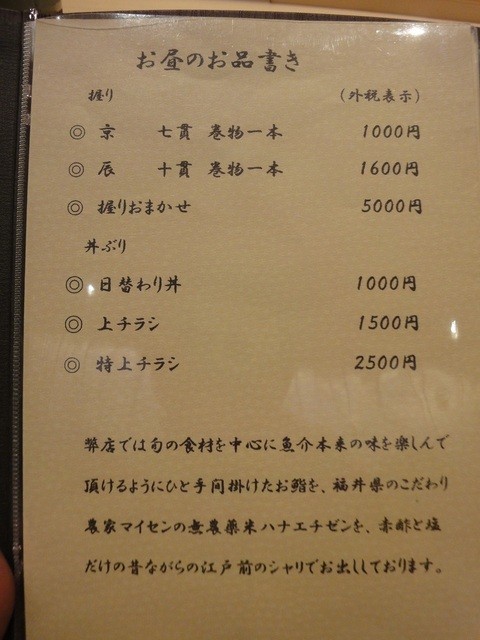 お昼のお品書き
握り （外税表示）
◎ 京 七貫 巻物一本 1000円
◎ 辰 十貫 巻物一本 1600円
◎ 握りおまかせ 5000円
丼ぶり
◎ 日替わり丼 1000円
◎ 上チラシ 1500円
◎ 特上チラシ 2500円
弊店では旬の食材を中心に魚介本来の味を楽しんで
頂けるようにひと手間掛けたお鮨を、福井県のこだわり
農家マイセンの無農薬米ハナエチゼンを、赤酢と塩
だけの昔ながらの江戸前のシャリでお出ししております。